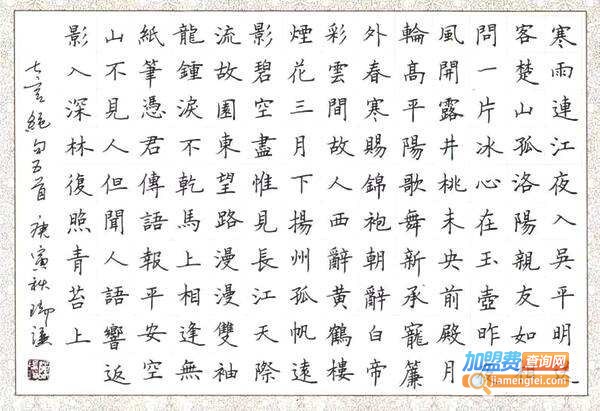 寒雨連江夜入吳平明
客楚山孤洛陽親友如
問一片冰心在玉壺昨
風開露井桃未央前殿月
輪高平陽歌舞新承寵簾
外春寒賜錦袍朝辭白帝
彩雲間故人西辭黃鶴樓
煙花三月下揚州孤帆遠
影碧空盡惟見長江天際
流故園東望路漫漫雙袖
龍鍾淚不乾馬上相逢無
紙筆憑君傳語報平安空
山不見人但聞人語響返
影入深林復照青苔上
七言絕句五首 庚寅秋
加盟费查询网
jiamengfei.com